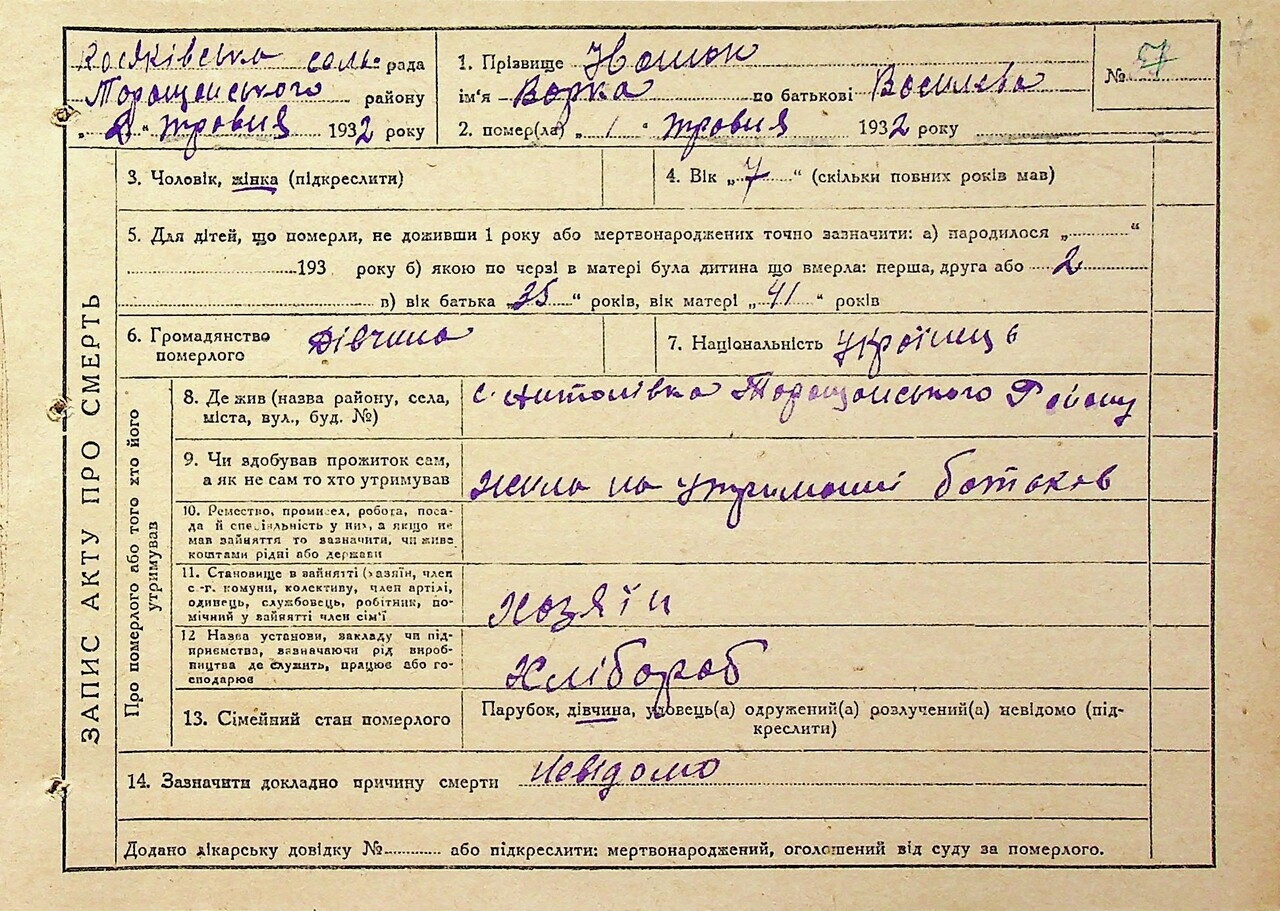 Косяківська сель- рада
Таращанського району
„ 2 " травня 1932 року
1. Прізвище Івашок
ім'я Варка по батькові Василєва
2. помер(ла) „ 1 " травня 1932 року
№ 57
ЗАПИС АКТУ ПРО СМЕРТЬ
3. Чоловік, жінка (підкреслити)
4. Вік „ 7 " (скільки повних років мав)
5. Для дітей, що померли, не доживши 1 року або мертвонароджених точно зазначити: а) народилося „ "
193 року б) якою по черзі в матері була дитина що вмерла: перша, друга або 2
в) вік батька „ 35 " років, вік матері „ 41 " років
6. Громадянство померлого дівчина
7. Національність українець
Про померлого або того хто його
утримував
8. Де жив (назва району, села,
міста, вул., буд. №)
с. Антолівка Таращанського Району
9. Чи здобував прожиток сам,
а як не сам то хто утримував
жила на утриманні батьков
10. Ремество, промисел, робота, поса-
да й спеціяльність у них, а якщо не
мав зайняття то зазначити, чи живе
коштами рідні або держави
11. Становище в зайнятті (хазяїн, член
с.-г. комуни, колективу, член артілі,
одинець, службовець, робітник, по-
мічний у зайнятті член сім'ї
хозяїн
12 Назва установи, закладу чи під-
приємства, зазначаючи рід вироб-
ництва де служить, працює або го-
сподарює
хлібороб
13. Сімейний стан померлого
Парубок, дівчина, удовець(а) одружений(а) розлучений(а) невідомо (під-
креслити)
14. Зазначити докладно причину смерти невідомо
Додано лікарську довідку № або підкреслити: мертвонароджений, оголошений від суду за померлого.